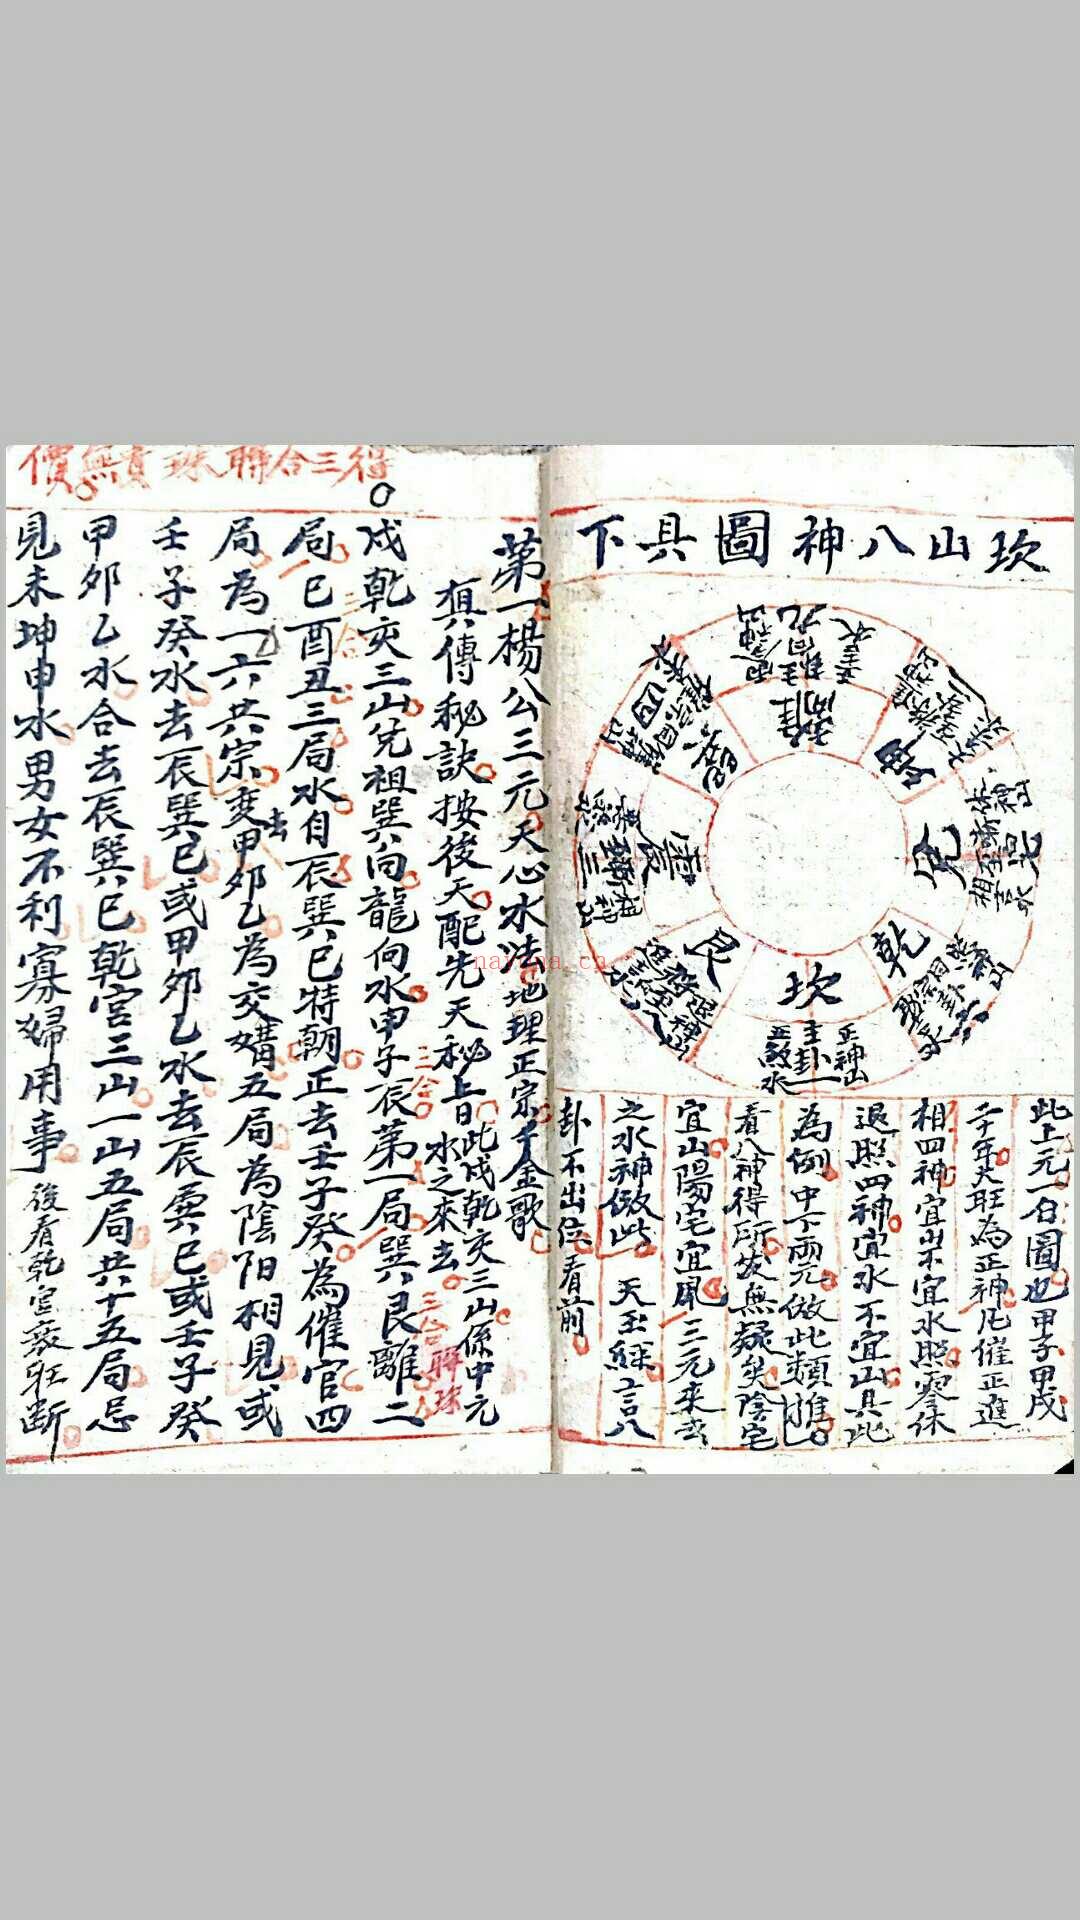 坎山八神圖具下
離
坤
兌
乾
坎
艮
震
主卦一
正神山
正煞水
此上元一白圖也甲子甲戌
二十年大旺為正神凡催正進
相四神宜山不宜水照零休
退照四神宜水不宜山具此
為例中下兩元倣此類推
看八神得所發無疑矣陰宅
宜山陽宅宜風三元來去
之水神倣此 天玉經言八
卦不出位看前
得三合聯珠貴無價
第一楊公三元天心水法地理正宗千金歌
真傳秘訣按後天配先天秘旨此戌乾亥三山係中元
水之來去
三合聯珠
戌乾亥三山先祖巽向龍向水申子辰第一局巽艮離二
三合
局巳酉丑三局水自辰巽巳特朝正去壬子癸為催官四
三合
局為一六共宗変甲夘乙為交媾五局為陰阳相見或
去
壬子癸水去辰巽巳或甲夘乙水去辰巽巳或壬子癸
甲夘乙水合去辰巽巳乾宮三山一山五局共十五局忌
見未坤申水男女不利寡婦用事 後看乾宮衰旺断
nayona.cn